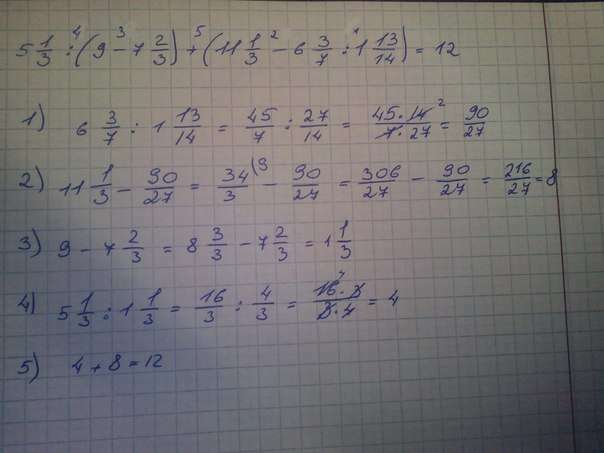 5 1/3 : (9 - 7 2/3) + (11 1/3 - 6 3/7 : 1 13/14) = 12
1) 6 3/7 : 1 13/14 = 45/7 : 27/14 = 45·14/7·27 = 90/27
2) 11 1/3 - 90/27 = 34/3 - 90/27 = 306/27 - 90/27 = 216/27 = 8
3) 9 - 7 2/3 = 8 3/3 - 7 2/3 = 1 1/3
4) 5 1/3 : 1 1/3 = 16/3 : 4/3 = 16·3/3·4 = 4
5) 4 + 8 = 12